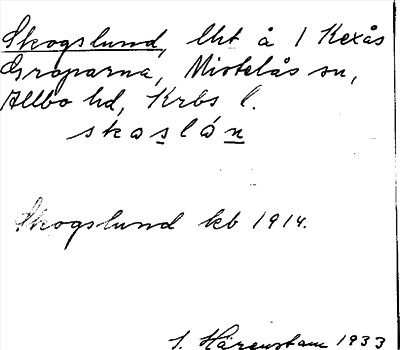 Skogslund, lht å 1 Kexås
Groparna, Mistelås sn,
Allbo hd, Krbs l.
skaslón
Skogslund kb 1914.
S. Härenstam 1933